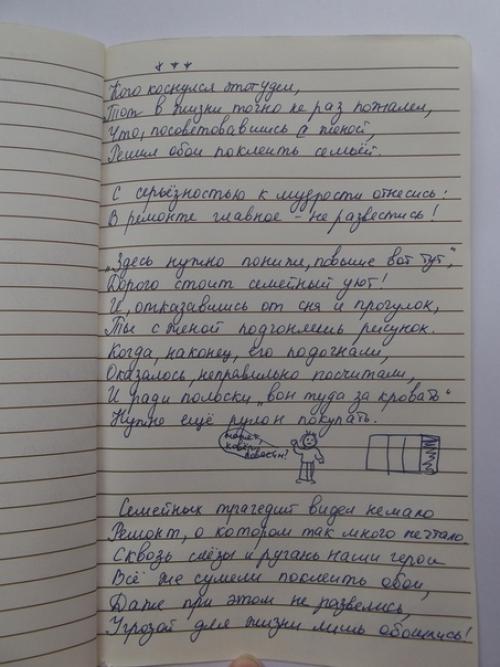 ***
Кого коснулся этот удел,
Тот в жизни точно не раз пожалел,
Что, посоветовавшись с женой,
Решил обои поклеить семьёй.
С серьёзностью к мудрости отнесись:
В ремонте главное - не развестись!
„Здесь нужно пониже, повыше вот тут",
Дорого стоит семейный уют!
И, отказавшись от сна и прогулок,
Ты с женой подгоняешь рисунок.
Когда, наконец, его подогнали,
Оказалось, неправильно посчитали,
И ради полоски „вон туда за кровать"
Нужно ещё рулон покупать.
Может,
ковёр
повесим?
Семейных трагедий видел немало
Ремонт, о котором так много мечтало.
Сквозь слёзы и ругань наши герои
Всё же сумели поклеить обои,
Даже при этом не развелись,
Угрозой для жизни лишь обошлись!